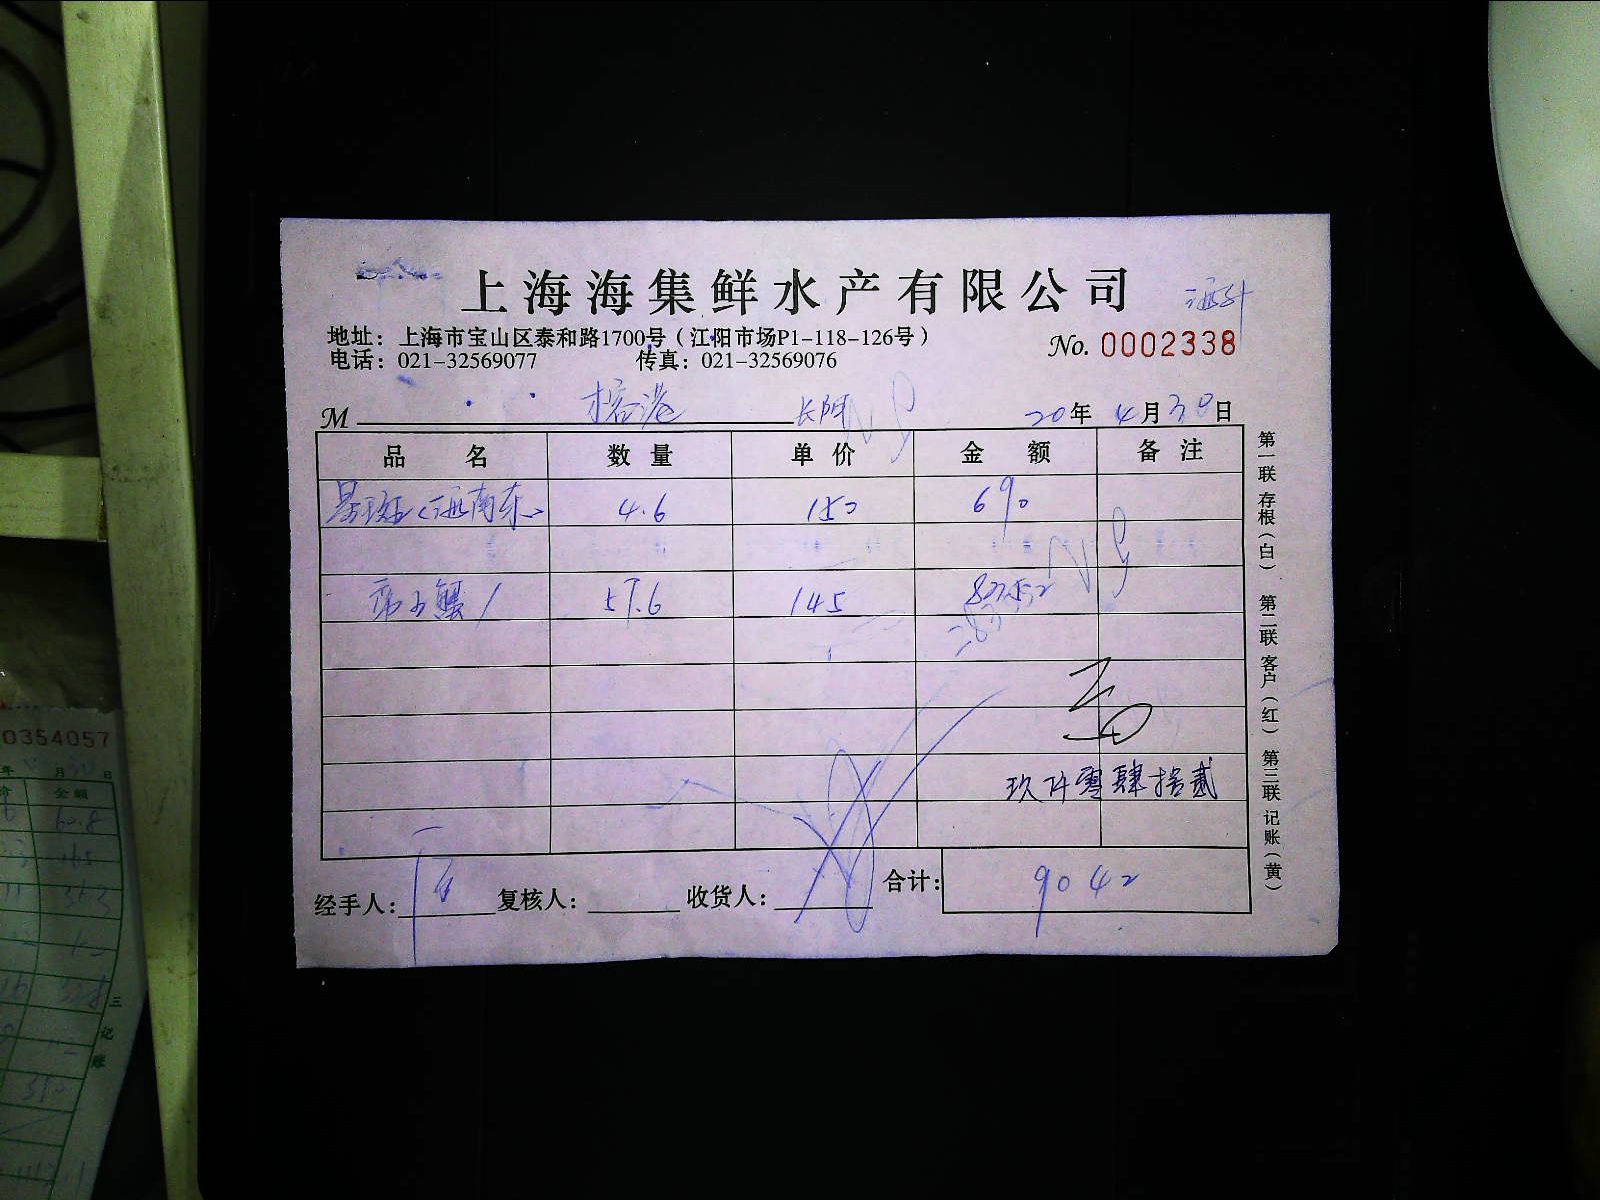 上海海集鲜水产有限公司
地址：上海市宝山区泰和路1700号（江阳市场P1-118-126号）
电话：021-32569077 传真：021-32569076
No. 0002338
M 榕港 长阳 20年 4月30日
品名 数量 单价 金额 备注
星斑（海南东） 4.6 150 690
57.6 145 8352
玖仟零肆拾贰
经手人： 复核人： 收货人： 合计： 9042
第一联 存根（白） 第二联 客户（红） 第三联 记账（黄）
0354057
年 月 日
金额
60.8
三 记 账